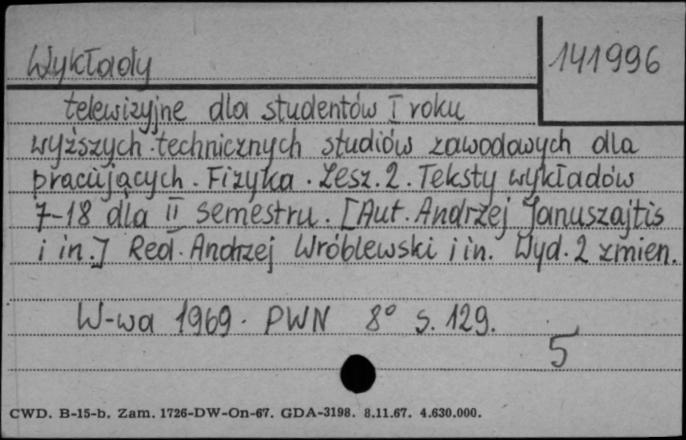 Wykłady
141996
telewizyjne dla studentów I roku
wyższych technicznych studiów zawodowych dla
pracujących. Fizyka. Zesz. 2. Teksty wykładów
7-18 dla II semestru. [Aut. Andrzej Januszajtis
i in.] Red. Andrzej Wróblewski i in. Wyd. 2 zmien.
W-wa 1969. PWN 8° s. 129.
5
CWD. B-15-b. Zam. 1726-DW-On-67. GDA-3198. 8.11.67. 4.630.000.